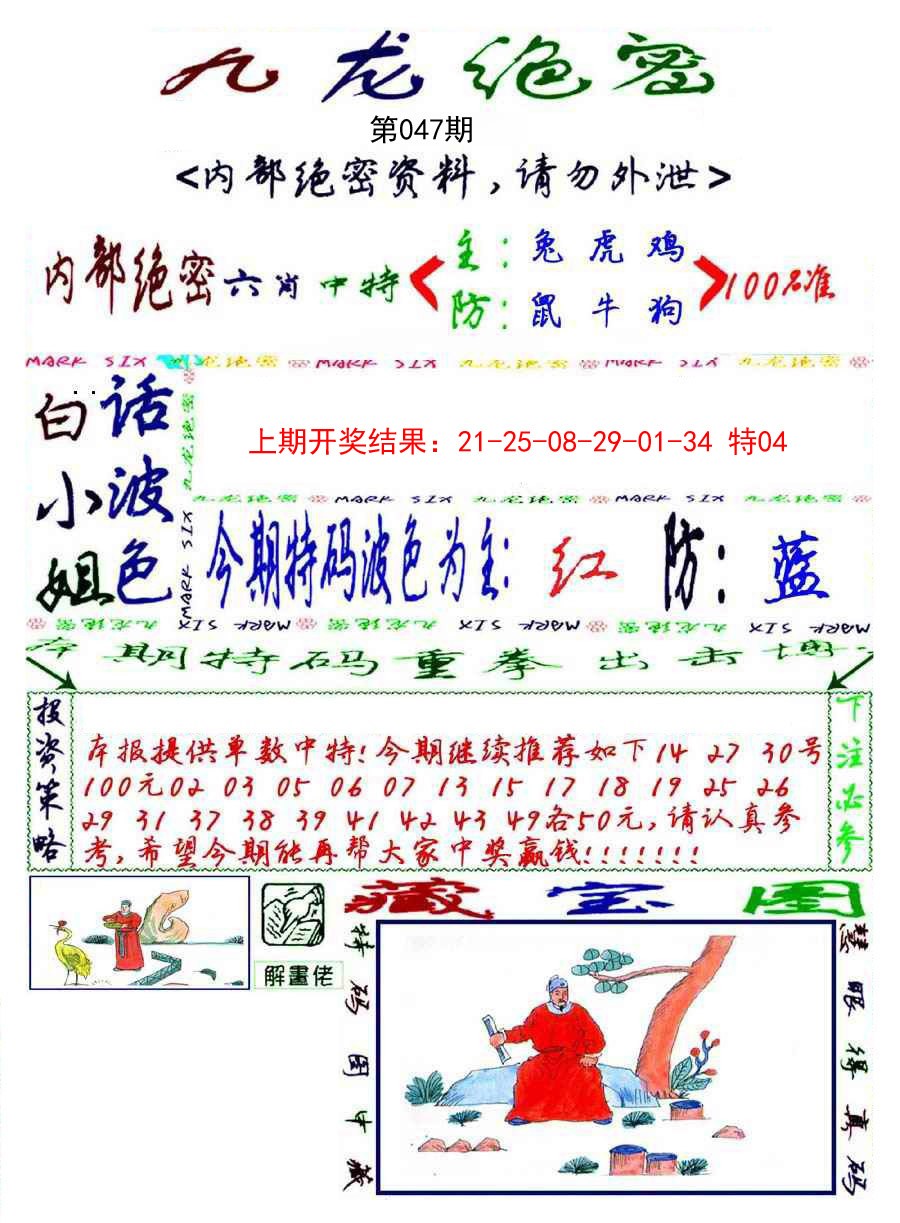 九龙绝密
第047期
<内部绝密资料,请勿外泄>
内部绝密六肖中特
主:兔虎鸡
防:鼠牛狗
100%准
MARK SIX 九龙绝密 MARK SIX 九龙绝密 MARK SIX 九龙绝密
白话
小波
姐色
九龙绝密
MARK SIX
上期开奖结果：21-25-08-29-01-34 特04
九龙绝密 MARK SIX 九龙绝密 MARK SIX 九龙绝密
今期特码波色为主:红 防:蓝
九龙绝密 MARK SIX 九龙绝密 MARK SIX 九龙绝密 MARK SIX 九龙绝密 MARK
本期特码重拳出击博
投资策略
本报提供单数中特!今期继续推荐如下14 27 30号
100元02 03 05 06 07 13 15 17 18 19 25 26
29 31 37 38 39 41 42 43 49各50元,请认真参
考,希望今期能再帮大家中奖赢钱!!!!!!!
下注必参
解畫佬
藏宝图
特码图中藏
慧眼得真码